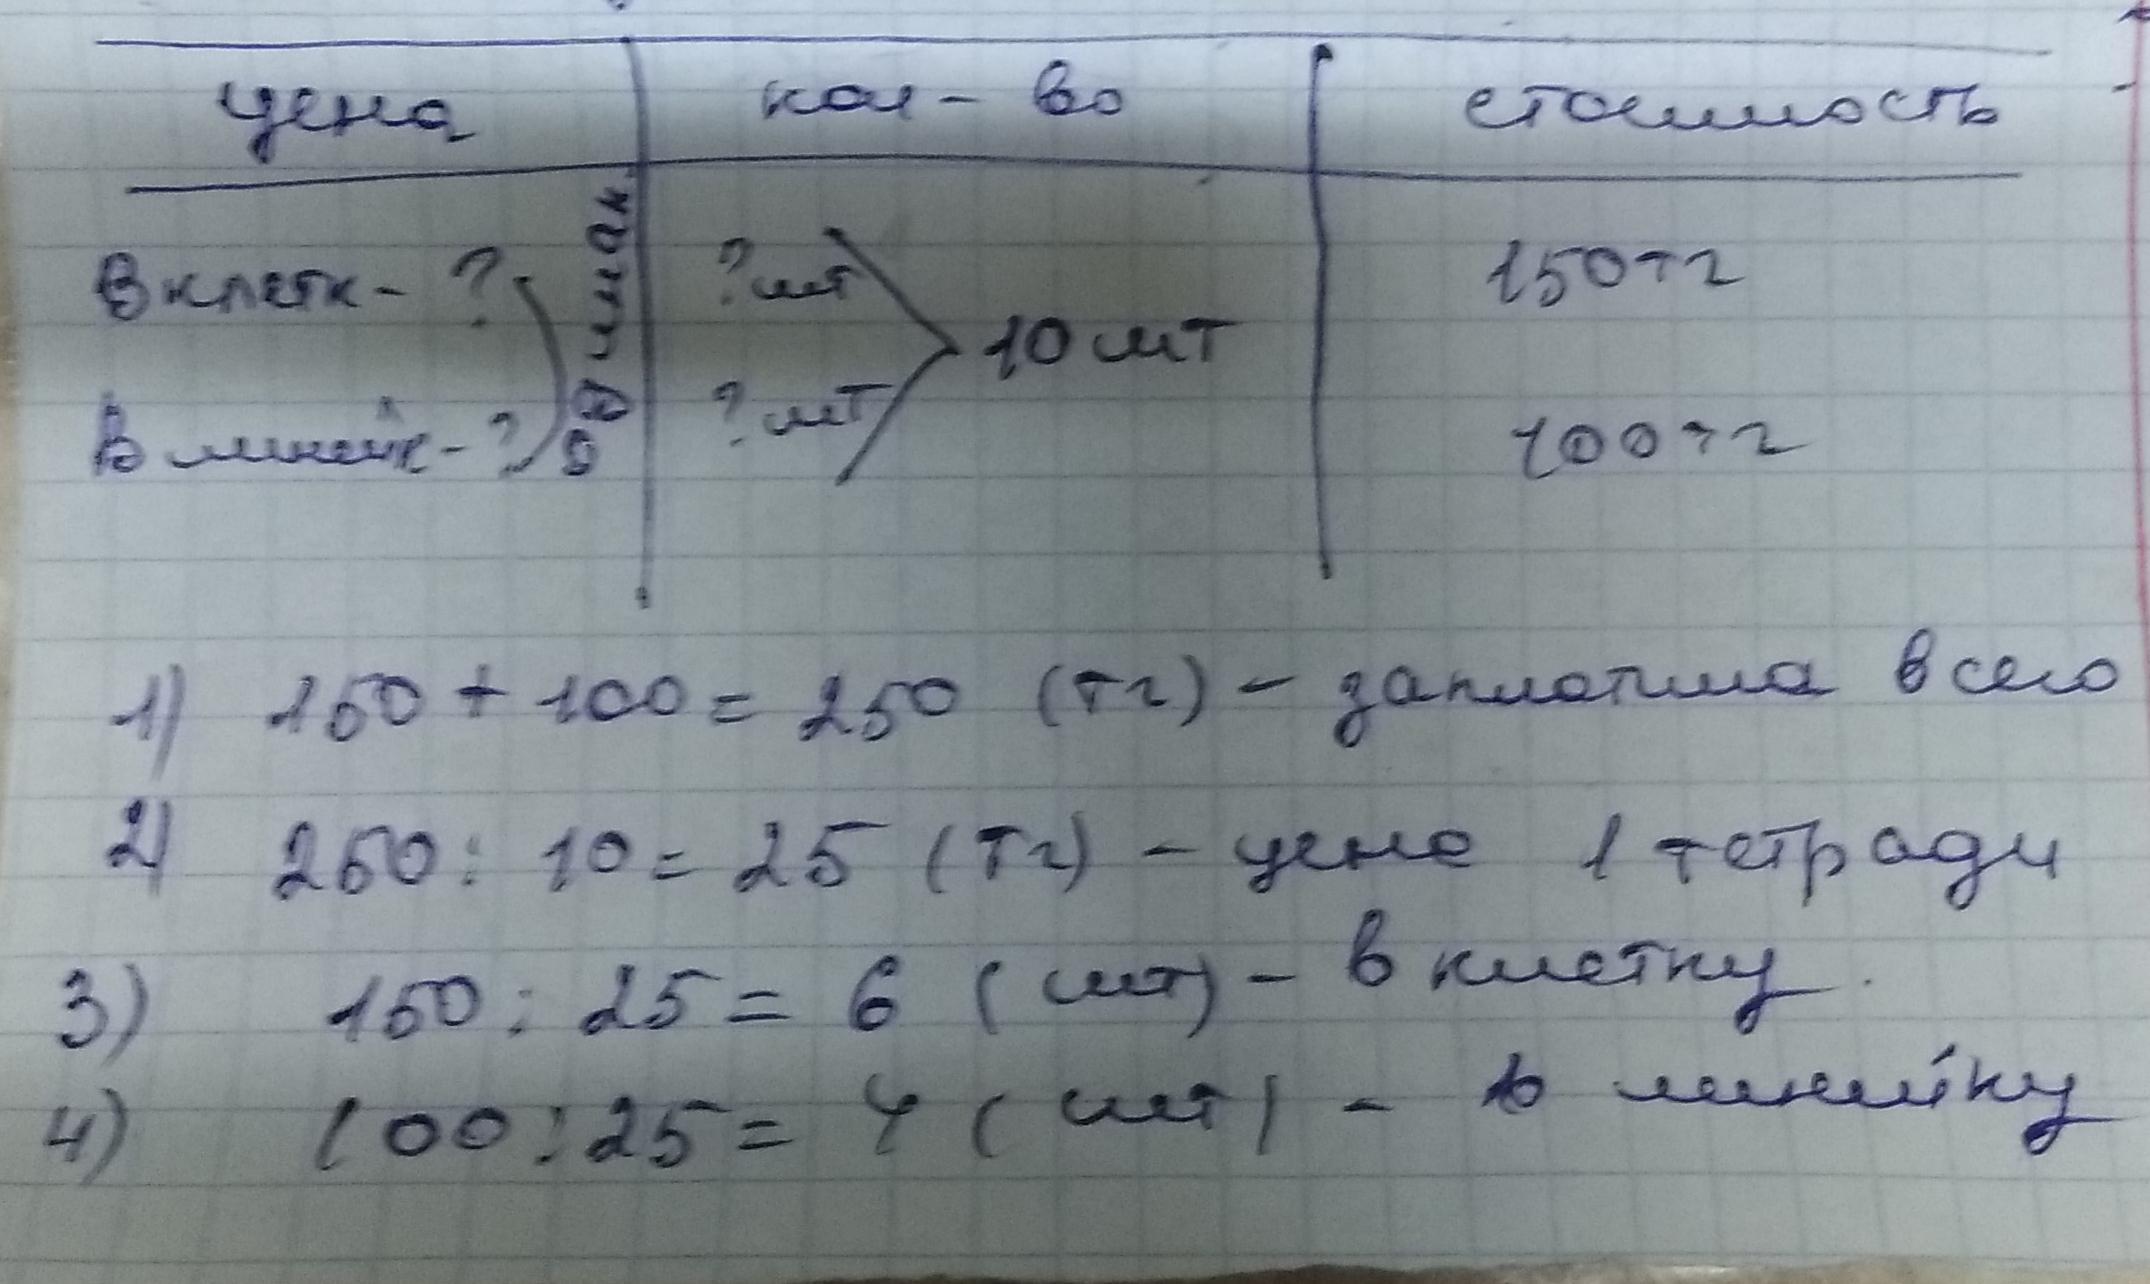 цена кол-во стоимость
В клетк - ? ? шт 150 тг
одинак. 10 шт
В линейк - ? ? шт 100 тг
1) 150 + 100 = 250 (тг) - заплатила всего
2) 250 : 10 = 25 (тг) - цена 1 тетради
3) 150 : 25 = 6 (шт) - в клетку.
4) 100 : 25 = 4 (шт) - в линейку